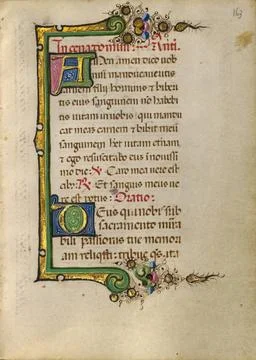 Amen amen dico vob
nisi manducaveritis
carnem filii hominis et biberi
tis eius sanguinem nō habebi
tis vitam in vobis qui mandu
cat meas carnem et bibit meū
sanguinem het vitam eternā,
et ego resuscitabo eū ī novissi
mo die: ℣. Caro mea vere est
cib: ℟. Et sanguis meus ve
re est potus: Oratio:
Deus qui nobis sub
sacramento mira
bili passionis tue memori
am reliqsti: tribue qs. ita